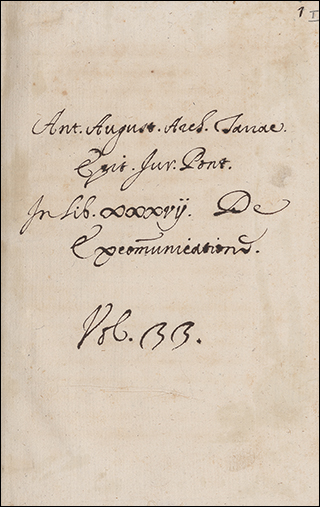 1
Ant. August. Arch. Tarrac.
Epit. Jur. Pont.
In Lib. xxxvij. De
Excom̃unication̄.
Vol. 33.